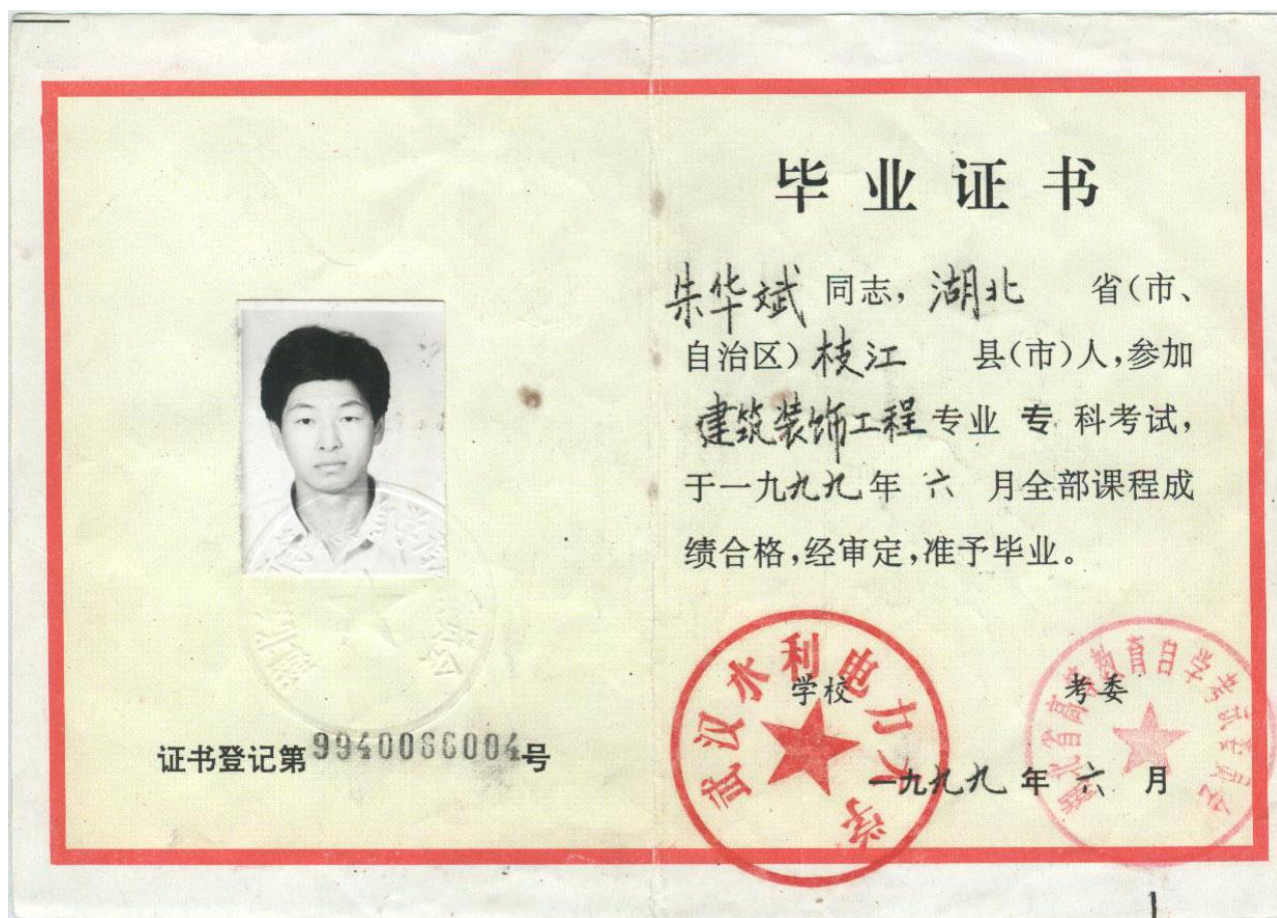 毕业证书
朱华斌 同志，湖北 省（市、
自治区）枝江 县（市）人，参加
建筑装饰工程 专业 专 科考试，
于一九九九年 六 月全部课程成
绩合格，经审定，准予毕业。
武汉水利电力大学
学校
湖北省高等教育自学考试委员会
考委
一九九九 年 六 月
证书登记第9940066004号